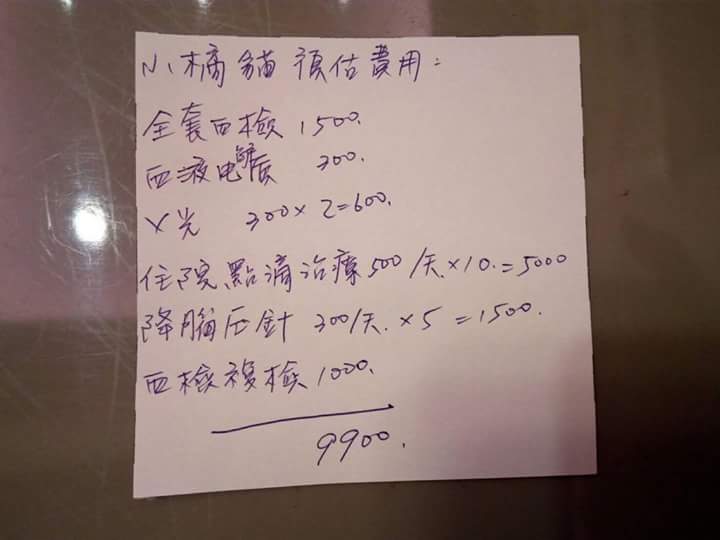 小橘貓預估費用:
全套血檢 1500.
血液电解质 300.
X光 300×2=600.
住院點滴治療500/天.×10.=5000
降腦压針 300/天.×5=1500.
血檢複檢1000.
9900.